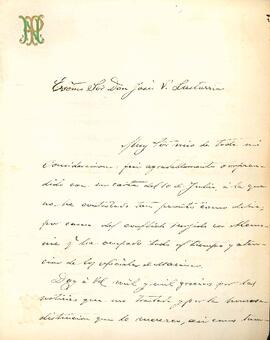 Excmo. Sor. Don José V. Lastarria
Muy Sor. mio de toda mi
consideracion: fui agradablemente sorpren-
dido con su carta del 10 de Julio, á la que
no he contestado tan pronto como debia,
por causa del conflicto surgido en
y ha ocupado todo el tiempo y aten-
cion de los oficiales de Marina.
Doy á Vd. mil y mil gracias por las
noticias que me trasmite y por la honrosa
distincion que le merezco, así como